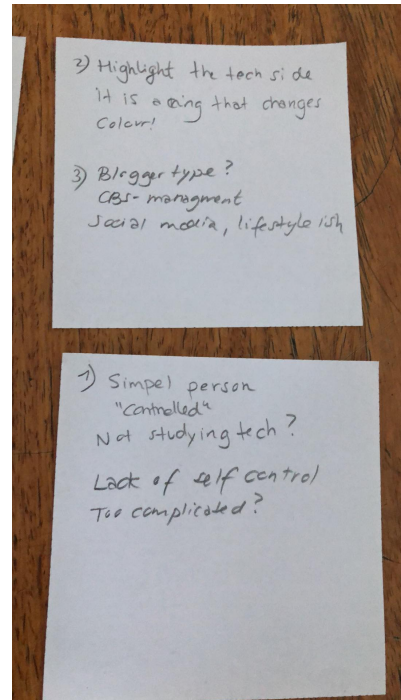 2) Highlight the tech side
it is a ring that changes
Colour!
3) Blogger type?
CBS- managment
Social media, lifestyle ish
1) Simpel person
"Controlled"
Not studying tech?
Lack of self control
Too complicated?